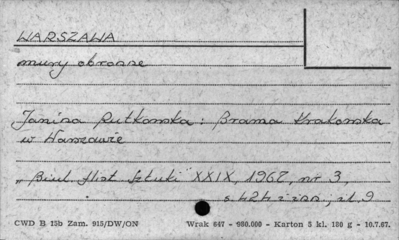 WARSZAWA
mury obronne
Janina Rutkowska: Brama Krakowska
w Warszawie
"Biul. Hist. Sztuki" XXIX, 1967, nr 3,
s. 424 i nn., il. 9
CWD B 15b Zam. 915/DW/ON Wrak 647 - 980.000 - Karton 5 kl. 180 g - 10.7.67.